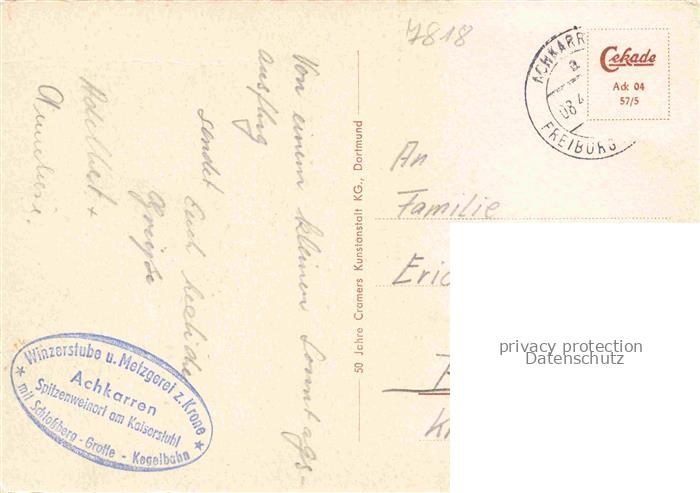 7818
ACHKARR
a
08.4
FREIBURG
Cekade
Ack 04
57/5
An
Familie
Eric
privacy protection
Datenschutz
50 Jahre Cramers Kunstanstalt KG., Dortmund
Von einem kleinen Sonntags-
ausflug
sendet Euch herzliche
Grüße
Adelbert +
Winzerstube u. Metzgerei z. Krone
Achkarren
Spitzenweinort am Kaiserstuhl
mit Schloßberg - Grotte - Kegelbahn